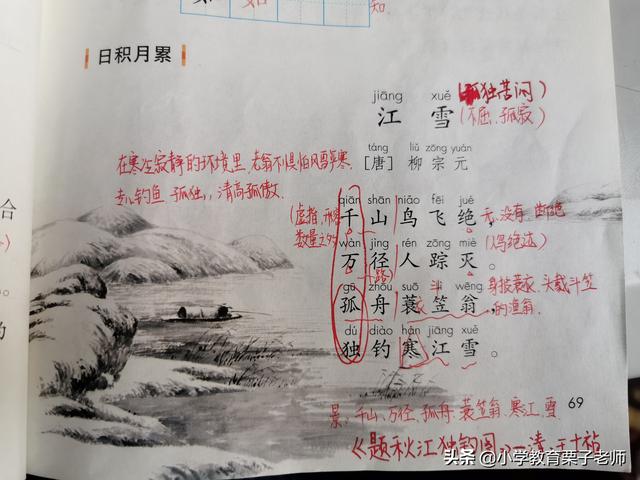 知.
日积月累
jiāng xuě (孤独苦闷)
江 雪 (不屈、孤寂)
táng liǔ zōng yuán
[唐] 柳宗元
在寒冷寂静的环境里,老翁不惧怕风雪严寒.
去钓鱼 孤独, 清高孤傲.
qiān shān niǎo fēi jué
千山鸟飞绝, 无, 没有 断绝
(虚指,形容
数量之多)
wàn jìng rén zōng miè
万径人踪灭。 (鸟绝迹)
路
gū zhōu suō lì wēng
孤舟蓑笠翁, 身披蓑衣、头戴斗笠
的渔翁.
dú diào hán jiāng xuě
独钓寒江雪。
景: 千山、万径、孤舟、蓑笠翁、寒江、雪
69
《题秋江独钓图》—清·王士祯
头条 @小学教育栗子老师
合
。
的